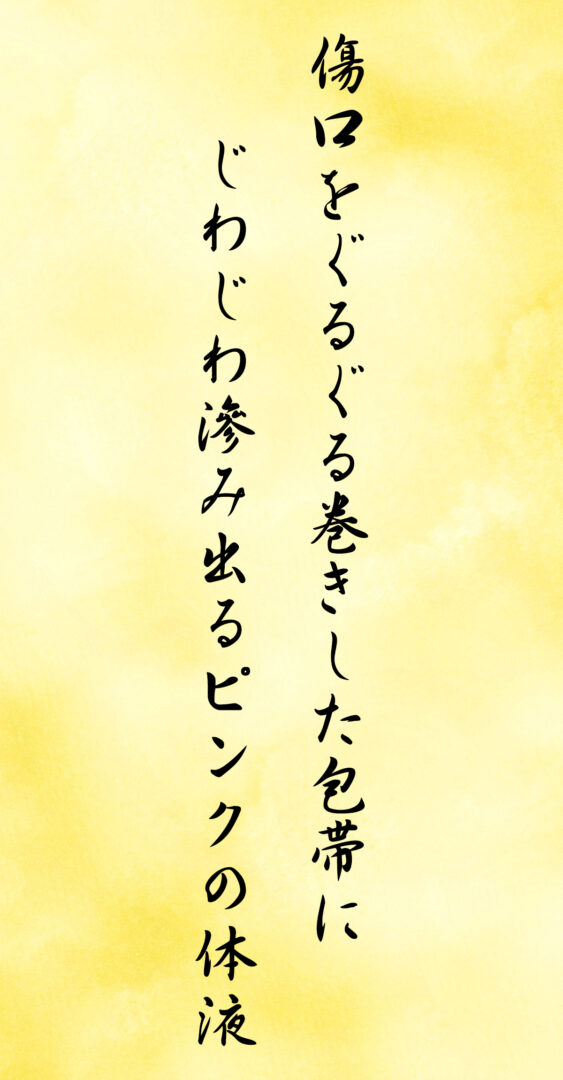 傷口をぐるぐる巻きした包帯に
じわじわ滲み出るピンクの体液